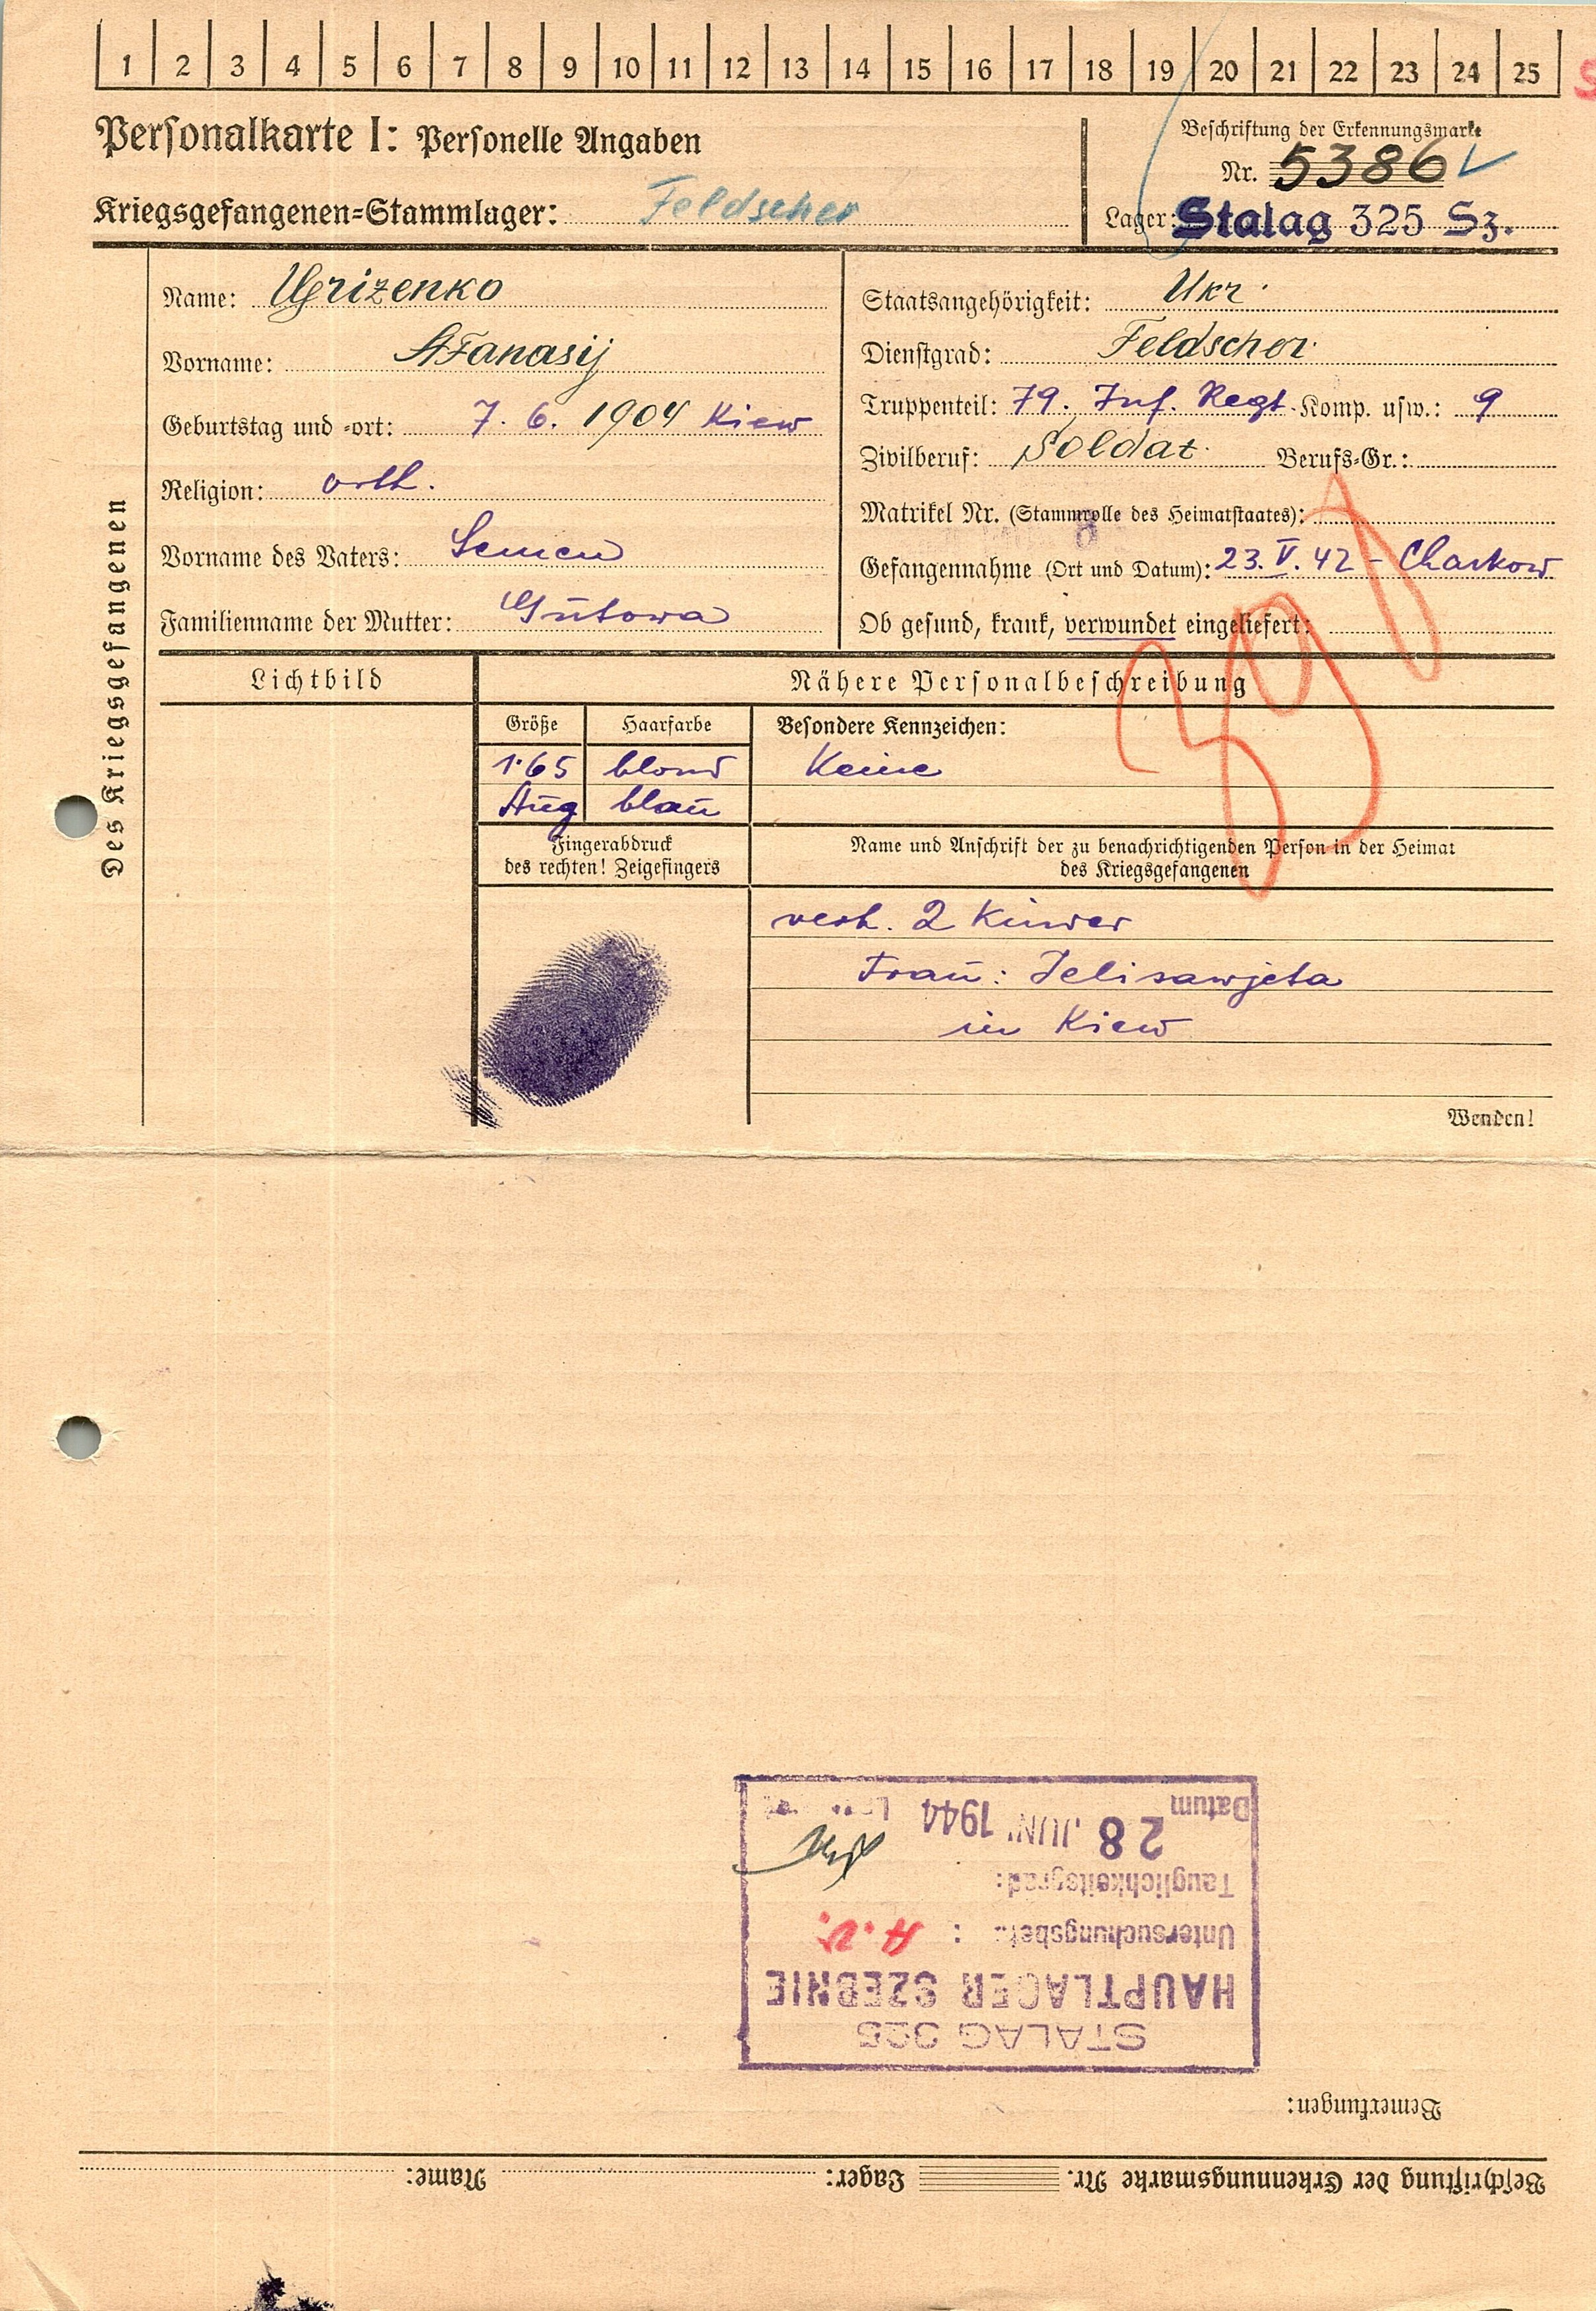 1 2 3 4 5 6 7 8 9 10 11 12 13 14 15 16 17 18 19 20 21 22 23 24 25 S
Personalkarte I: Personelle Angaben
Kriegsgefangenen=Stammlager: Feldscher
Beschriftung der Erkennungsmarke
Nr. 5386
Lager: Stalag 325 Sz.
Des Kriegsgefangenen
Name: Ugrizenko
Vorname: Afanasij
Geburtstag und =ort: 7. 6. 1904 Kiew
Religion: orth.
Vorname des Vaters: Semen
Familienname der Mutter: Gutowa
Staatsangehörigkeit: Ukr.
Dienstgrad: Feldscher
Truppenteil: 79. Inf. Regt. Komp. usw.: 9
Zivilberuf: Soldat. Berufs=Gr.:
Matrikel Nr. (Stammrolle des Heimatstaates):
Gefangennahme (Ort und Datum): 23. V. 42 - Charkow
Ob gesund, krank, verwundet eingeliefert:
Lichtbild
Nähere Personalbeschreibung
Größe Haarfarbe Besondere Kennzeichen:
1.65 blond Keine
Aug blau
Fingerabdruck
des rechten! Zeigefingers
Name und Anschrift der zu benachrichtigenden Person in der Heimat
des Kriegsgefangenen
verh. 2 Kinder
Frau: Jelisawjeta
in Kiew
Wenden!
Beschriftung der Erkennungsmarke Nr. Lager: Name:
Bemerkungen:
STALAG 325
HAUPTLAGER SZEBNIE
Untersuchungsbef. : A.V.
Tauglichkeitsgrad:
Datum 28 JUNI 1944